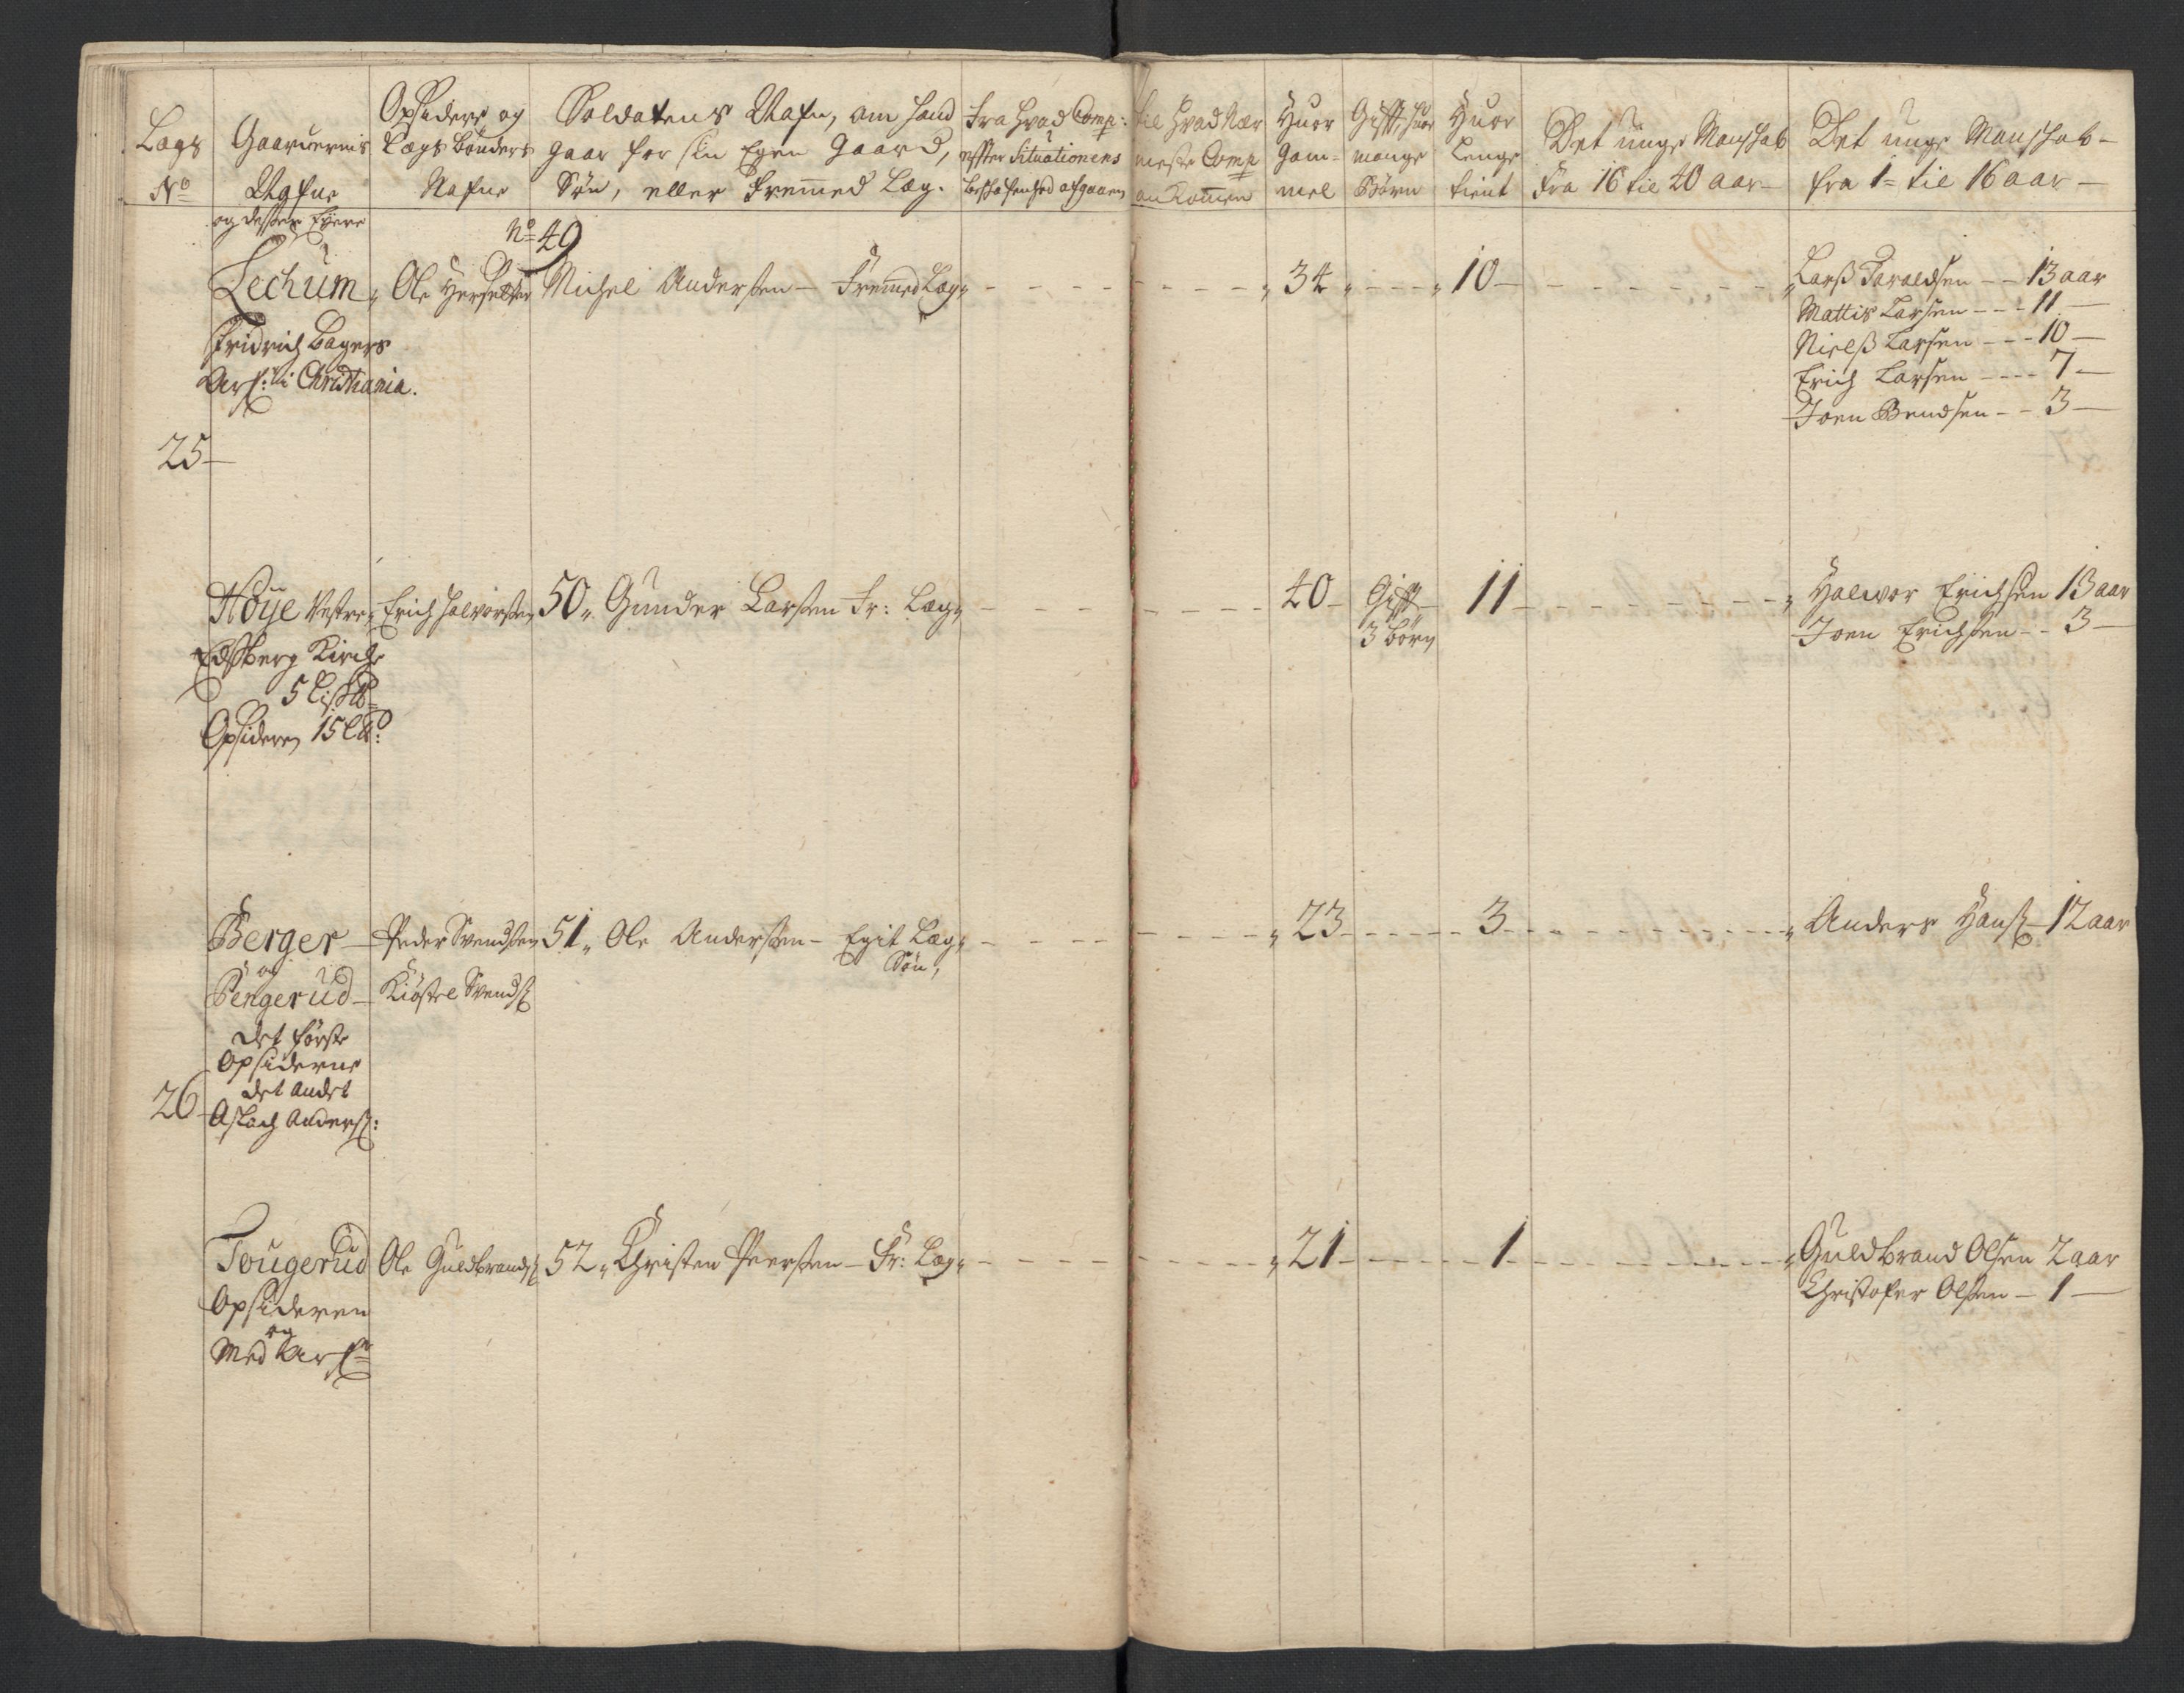 Lægs
No
Gaardernis
Nafne
og desses Eyere
Opsidere og
Lægs bönders
Nafne
Soldatens Nafn, om hand
gaar for sin Egen Gaard,
Sön, eller Fremmed Læg.
Fra hvad Comp:
effter Situationens
beskafenhed afgaaen
til hvad Nær
meste Comp
an Kommen
Huor
Gam-
mel
Gifft, huor
mange
Börn
Huor
Lenge
tient
Det unge Mandskab
fra 16 til 40 aar
Det unge Mandskab
fra 1 til 16 aar
25
Lechum
Fridrich Bagers
Arf: i Christiania.
Ole
No 49
Michel Andersen Fremmed Læg
34
10
Lars Taraldsen 13 aar
Mattis Larsen 11
Niels Larsen 10
Erich Larsen 7
Joen Bendsen 3
Höije Vestre
Edsberg Kirche
5 Lis℔
Opsideren 15 L℔:
Erich Halvorsen
50 Gunder Larsen Fr: Læg
40
Gifft
3 börn
11
Halvor Erichsen 13 aar
Joen Erichsen 3
26
Berger
og
Pengerud
det förste
Opsiderne
det andet
Aslach Anders:
Peder Svendsen
Kiöstel Svends
51 Ole Andersen Egit Læg
Sön,
23
3
Anders Hans 12 aar
Tougerud
Opsideren
og
Med Arf
Ole Guldbrands
52 Christen Peersen Fr: Læg
21
1
Guldbrand Olsen 2 aar
Christofer Olsen 1